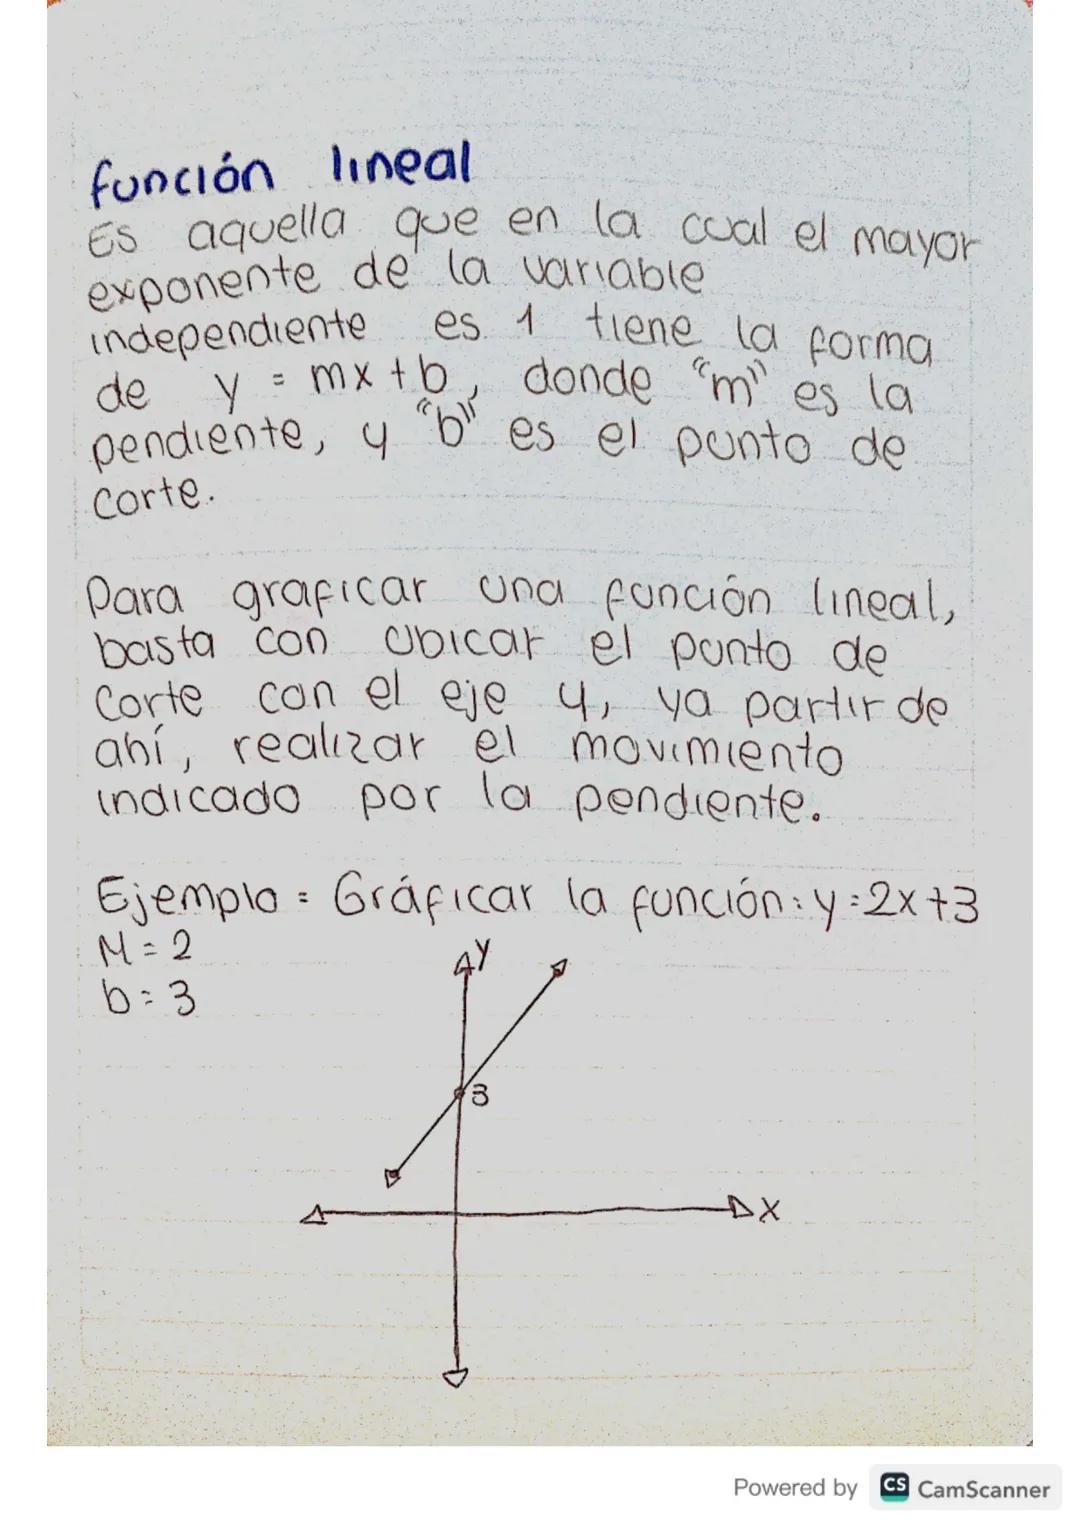 función lineal
Es aquella que en la cual el mayor
exponente de la variable
independiente es 1 tiene la forma
de y = mx + b, donde "m" es la
pendiente, y "b" es el punto de
corte.
Para graficar una función lineal,
basta con ubicar el punto de
corte con el eje y, ya partir de
ahí, realizar el movimiento
indicado por la pendiente.
Ejemplo = Gráficar la función: y = 2x + 3
M = 2
b = 3
y
3
x
Powered by CS CamScanner